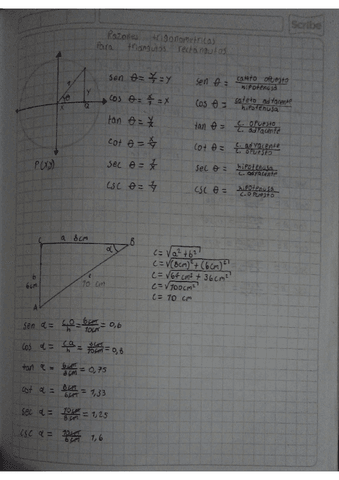 Scribe
Razones trigonométricas
Para triángulos rectángulos
sen θ = y/1 = y
cos θ = x/1 = x
tan θ = y/x
cot θ = x/y
sec θ = 1/x
csc θ = 1/y
P(x,y)
sen θ = cateto opuesto/hipotenusa
cos θ = cateto adyacente/hipotenusa
tan θ = c. opuesto/c. adyacente
cot θ = c. adyacente/c. opuesto
sec θ = hipotenusa/c. adyacente
csc θ = hipotenusa/c. opuesto
C a 8cm B
α
b 6cm
10 cm
A
c = √a² + b²
c = √(8cm)² + (6cm)²
c = √64cm² + 36cm²
c = √100cm²
c = 10 cm
sen α = C.O/h = 6cm/10cm = 0,6
cos α = C.a/h = 8cm/10cm = 0,8
tan α = 6cm/8cm = 0,75
cot α = 8cm/6cm = 1,33
sec α = 10cm/8cm = 1,25
csc α = 10cm/6cm 1,6